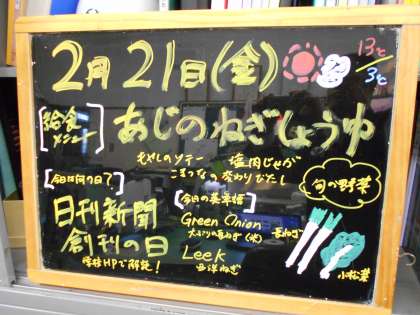 2月21日(金)
13℃
3℃
[給食メニュー]
あじのねぎしょうゆ
もやしのソテー 塩肉じゃが
こまつなの変わりびたし
旬の野菜
[今日は何の日?]
日刊新聞
創刊の日
学校HPで解説!
[今日の英単語]
Green Onion
Leek
西洋ねぎ
長ねぎ
小松菜